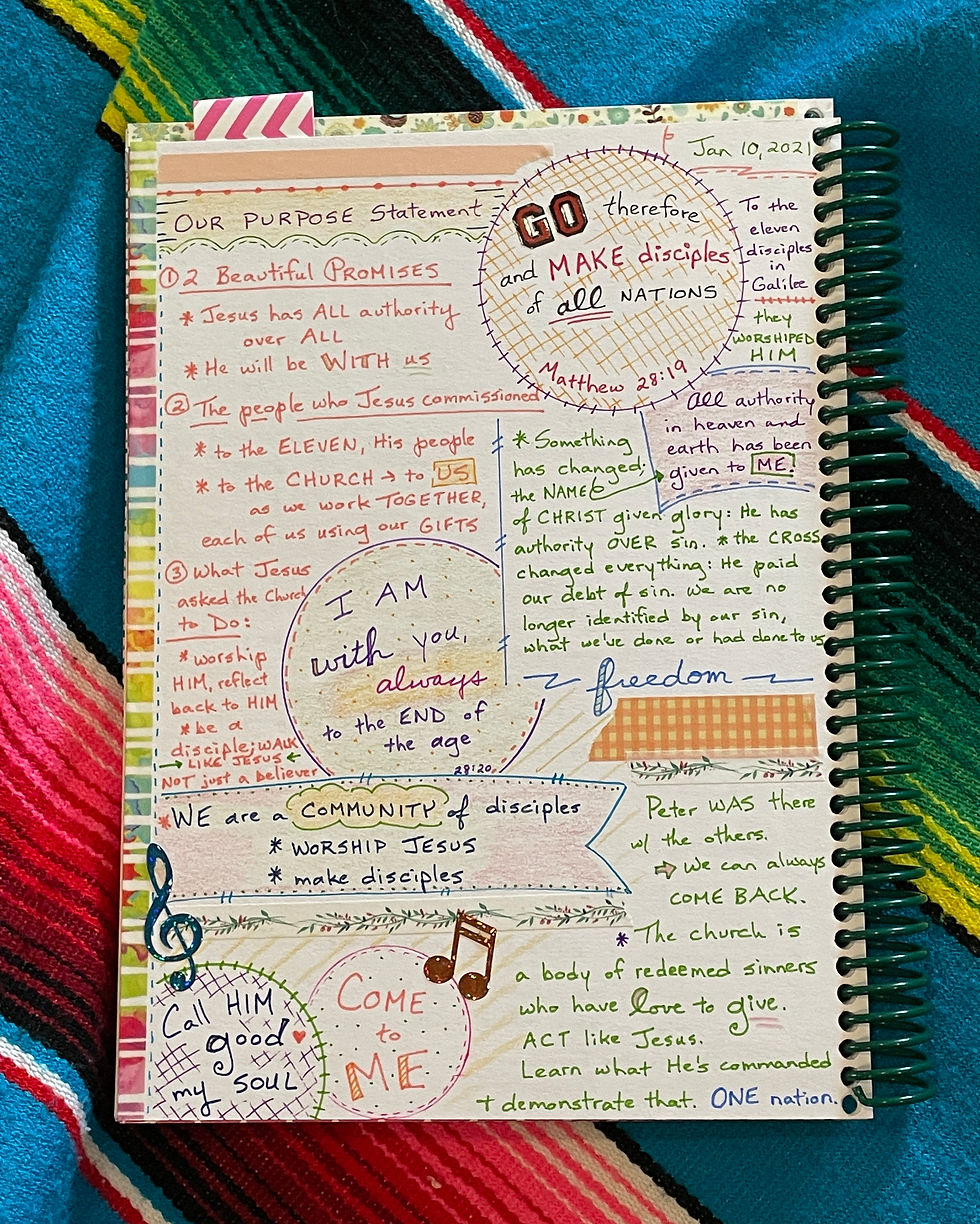 Jan 10, 2021
OUR PURPOSE Statement
GO therefore
and MAKE disciples
of all NATIONS
Matthew 28:19
To the
eleven
disciples
in
Galilee
they
WORSHIPED
HIM
① 2 Beautiful PROMISES
* Jesus has ALL authority
over ALL
* He will be WITH us
② The people who Jesus commissioned
* to the ELEVEN, His people
* to the CHURCH → to US
as we work TOGETHER,
each of us using our GIFTS
③ What Jesus
asked the Church
to Do:
* worship
HIM, reflect
back to HIM
* be a
disciple; WALK
→ LIKE JESUS ←
NOT just a believer
All authority
in heaven and
earth has been
given to ME!
* Something
has changed:
the NAME
of CHRIST given glory: He has
authority OVER sin. * the CROSS
changed everything: He paid
our debt of sin. We are no
longer identified by our sin,
what we've done or had done to us
freedom
I AM
with you,
always
to the END of
the age
28:20
* WE are a COMMUNITY of disciples
* WORSHIP JESUS
* make disciples
Peter WAS there
w/ the others.
⇨ We can always
COME BACK.
* The church is
a body of redeemed sinners
who have love to give.
ACT like Jesus.
Learn what He's commanded
+ demonstrate that. ONE nation.
Call HIM
good ♥
my SOUL
COME
to
ME